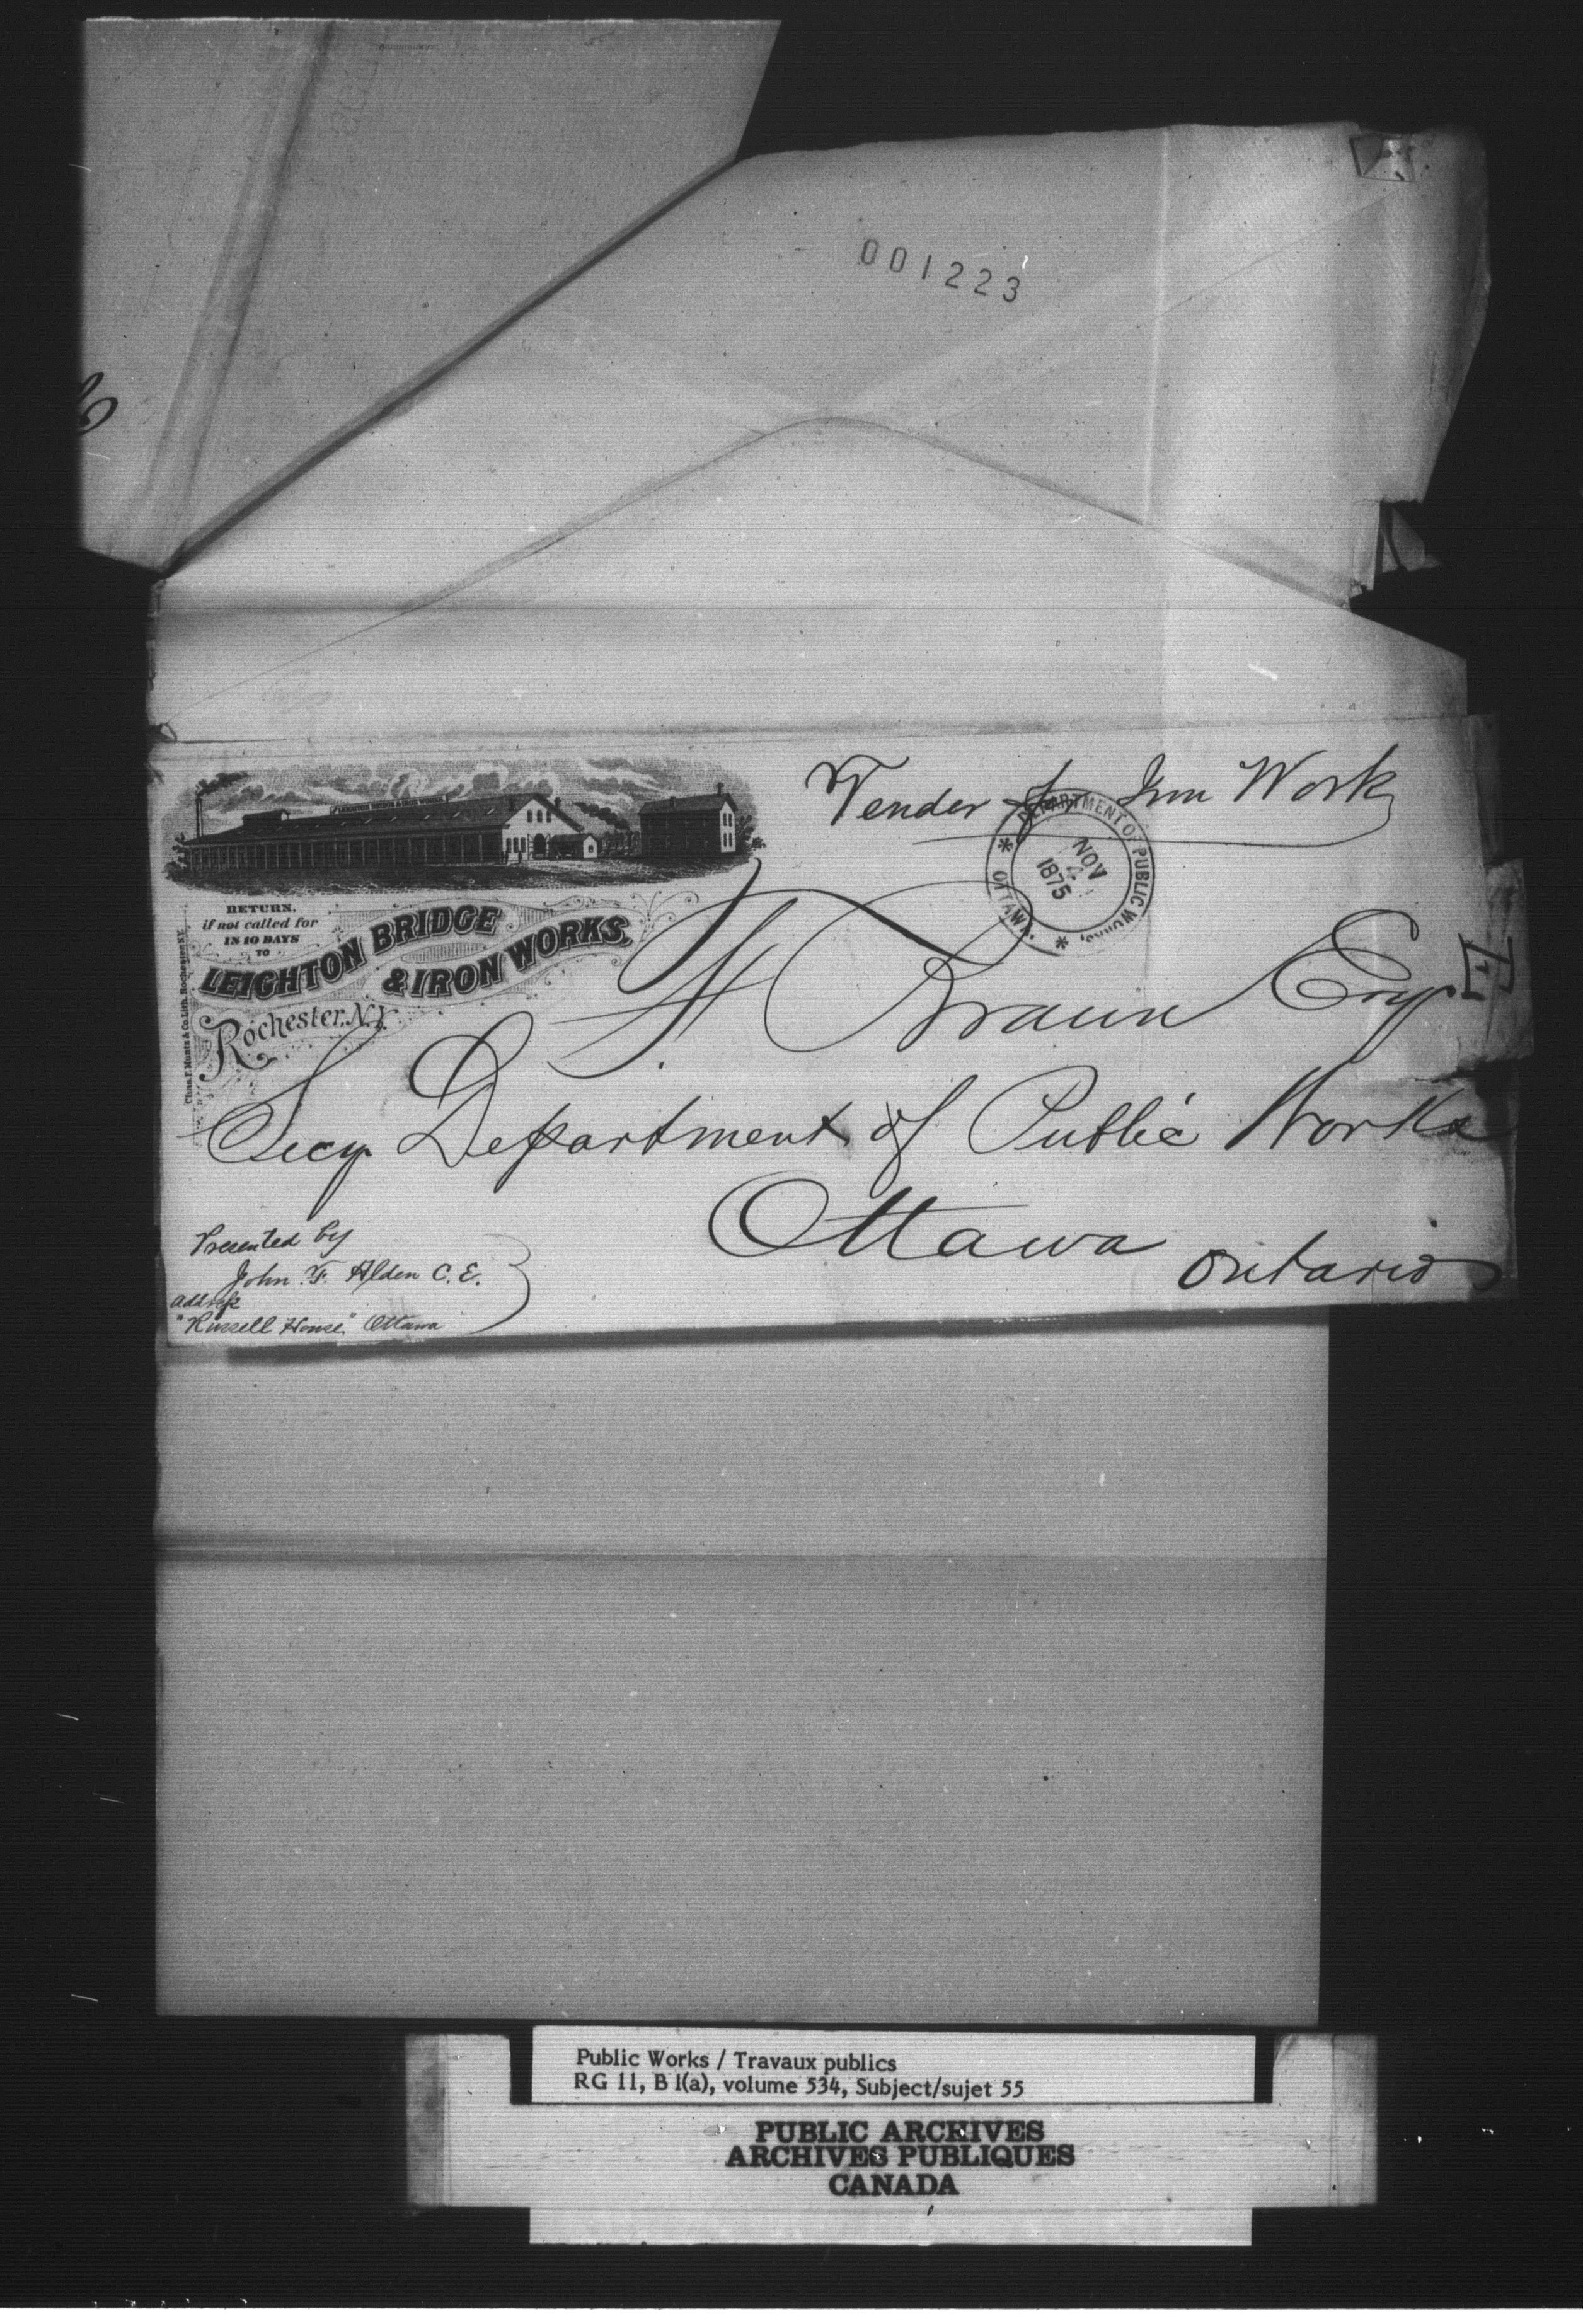 001223
Tender for Iron Work
DEPARTMENT OF PUBLIC WORKS,
OTTAWA.
NOV
4
1875
LEIGHTON BRIDGE & IRON WORKS
RETURN,
if not called for
IN 10 DAYS
TO
LEIGHTON BRIDGE
& IRON WORKS,
Rochester, N.Y.
Chas. F. Muntz & Co. Lith. Rochester N.Y.
F Braun Esq
Secy Department of Public Works
Ottawa
Ontario
Presented by
John F. Alden C. E.
Address
"Russell House" Ottawa
Public Works / Travaux publics
RG 11, B 1(a), volume 534, Subject/sujet 55
PUBLIC ARCHIVES
ARCHIVES PUBLIQUES
CANADA